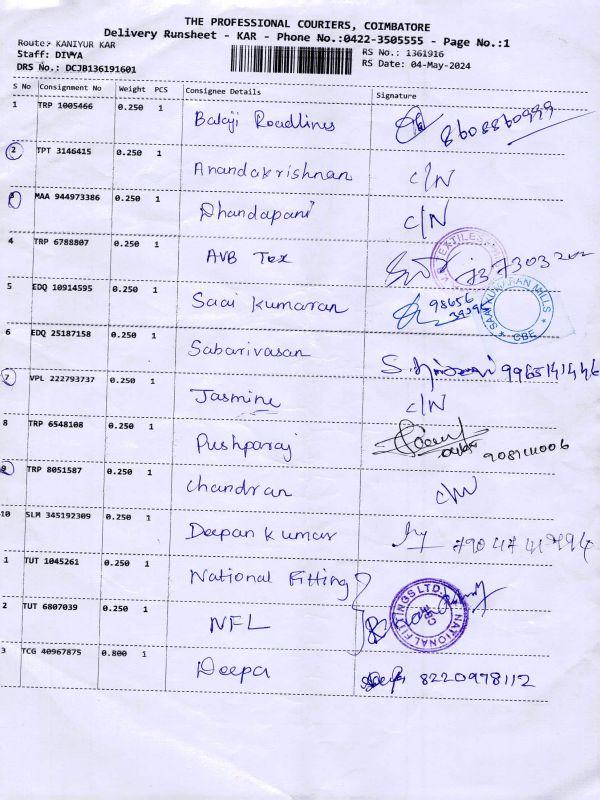 THE PROFESSIONAL COURIERS, COIMBATORE
Delivery Runsheet - KAR - Phone No.:0422-3505555 - Page No.:1
Route: KANIYUR KAR
RS No.: 1361916
Staff: DIVYA
RS Date: 04-May-2024
DRS No.: DCJB136191601
S No Consignment No Weight PCS Consignee Details Signature
1 TRP 1005466 0.250 1 Balaji Roadlines
2 TPT 3146415 0.250 1 Anandakrishnan C/N
3 MAA 944973386 0.250 1 Dhandapani C/N
4 TRP 6788807 0.250 1 AVB Tex
5 EDQ 10914595 0.250 1 Saai kumaran 98656
SAAI KUMARAN MILLS * CBE *
6 EDQ 25187158 0.250 1 Sabarivasan 9965141446
7 VPL 222793737 0.250 1 Jasmine C/N
8 TRP 6548108 0.250 1 Pushparaj
9 TRP 8051587 0.250 1 Chandran C/N
10 SLM 345192309 0.250 1 Deepan kumar
1 TUT 1045261 0.250 1 National Fitting
2 TUT 6807039 0.250 1 NFL
NATIONAL FITTINGS LTD. CBE
3 TCG 40967875 0.800 1 Deepa 8220978112